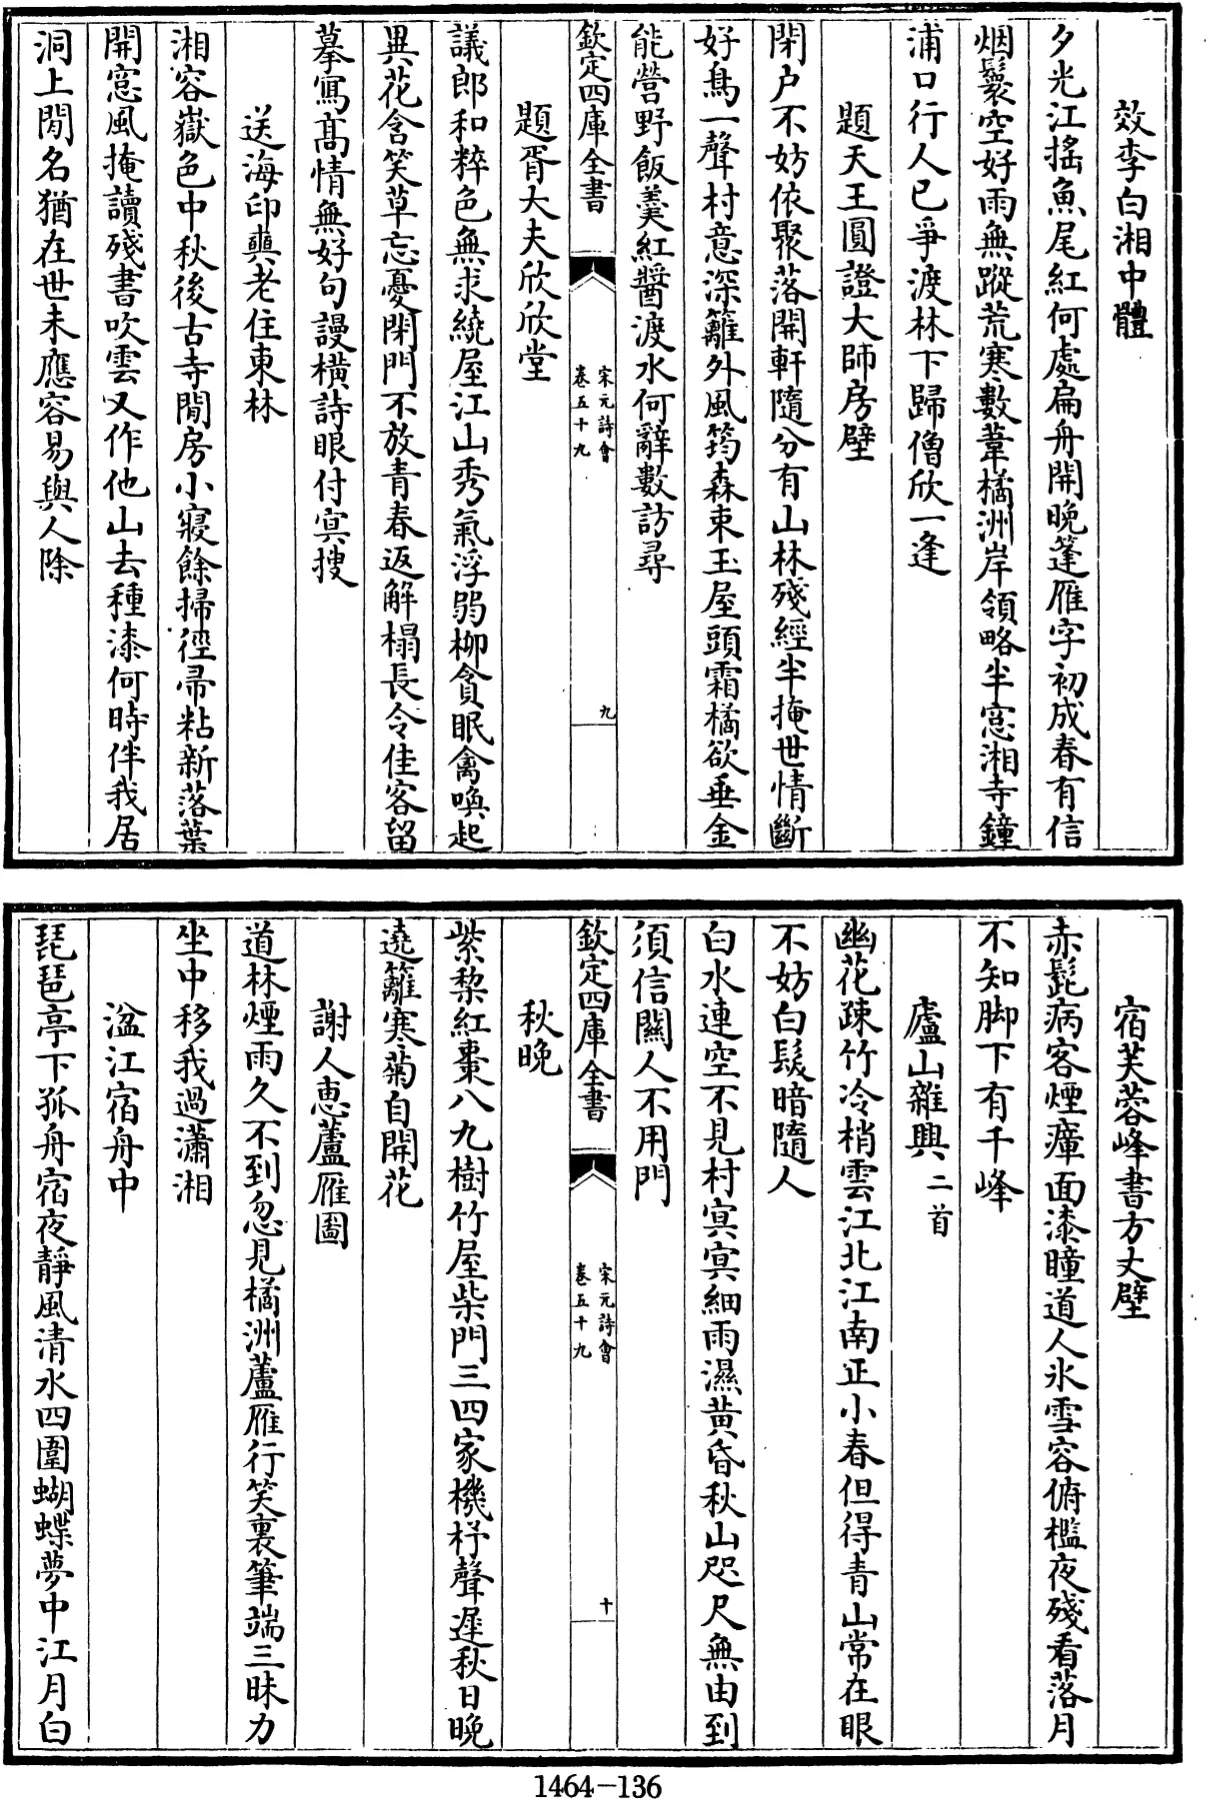 效李白湘中體
夕光江搖魚尾紅何處扁舟開晚篷雁字初成春有信
烟鬟空好雨無蹤荒寒數葦橘洲岸領略半窓湘寺鐘
浦口行人已爭渡林下歸僧欣一逢
題天王圓證大師房壁
閉户不妨依聚落開軒隨分有山林殘經半掩世情斷
好鳥一聲村意深籬外風筠森束玉屋頭霜橘欲垂金
能營野飯羹紅醬渡水何辭數訪尋
欽定四庫全書
宋元詩會
卷五十九
九
題胥大夫欣欣堂
議郎和粹色無求繞屋江山秀氣浮弱柳貪眠禽喚起
異花含笑草忘憂閉門不放青春返解榻長令佳客留
摹寫髙情無好句謾橫詩眼付㝠搜
送海印奭老住東林
湘容嶽色中秋後古寺閒房小寢餘掃徑帚粘新落葉
開窓風掩讀殘書吹雲又作他山去種漆何時伴我居
洞上閒名猶在世未應容易與人除
宿芙蓉峰書方丈壁
赤髭病客煙瘴面漆瞳道人氷雪容俯檻夜殘看落月
不知脚下有千峰
廬山雜興二首
幽花疎竹冷梢雲江北江南正小春但得青山常在眼
不妨白髮暗隨人
白水連空不見村㝠㝠細雨濕黄昏秋山咫尺無由到
須信闗人不用門
欽定四庫全書
宋元詩會
卷五十九
十
秋晚
紫棃紅棗八九樹竹屋柴門三四家機杼聲遲秋日晚
遶籬寒菊自開花
謝人惠蘆雁圖
道林煙雨久不到忽見橘洲蘆雁行笑裏筆端三昧力
坐中移我過瀟湘
湓江宿舟中
琵琶亭下孤舟宿夜靜風清水四圍蝴蝶夢中江月白
1464-136